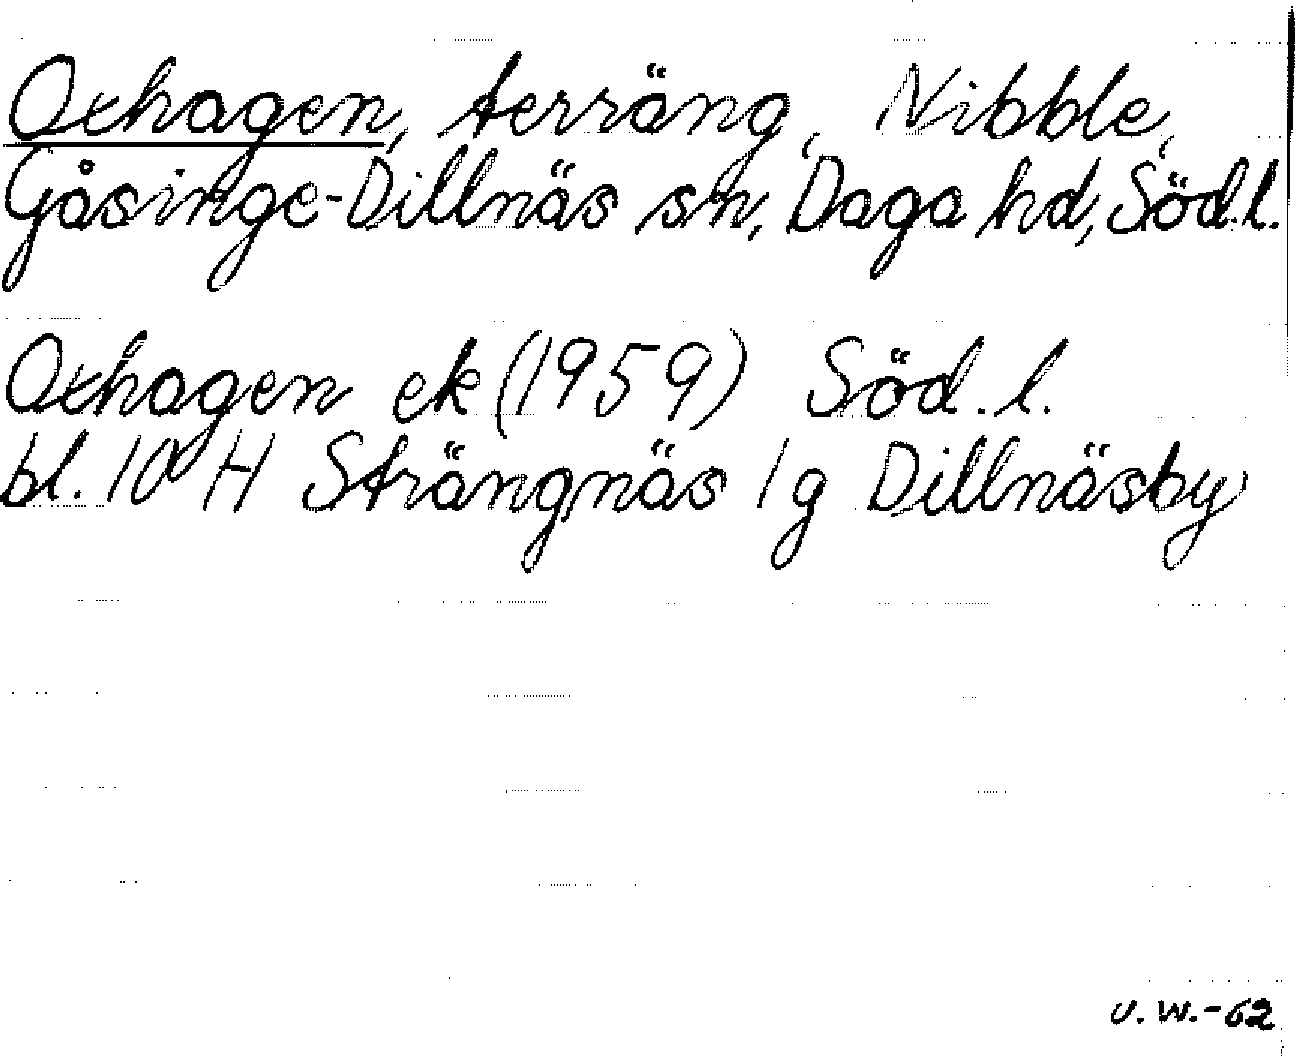 Oxhagen, terräng, Nibble,
Gåsinge-Dillnäs sn, Daga hd, Söd.l.
Oxhagen ek (1959) Söd.l.
bl. 10 H Strängnäs 1 g Dillnäsby
U.W.-62